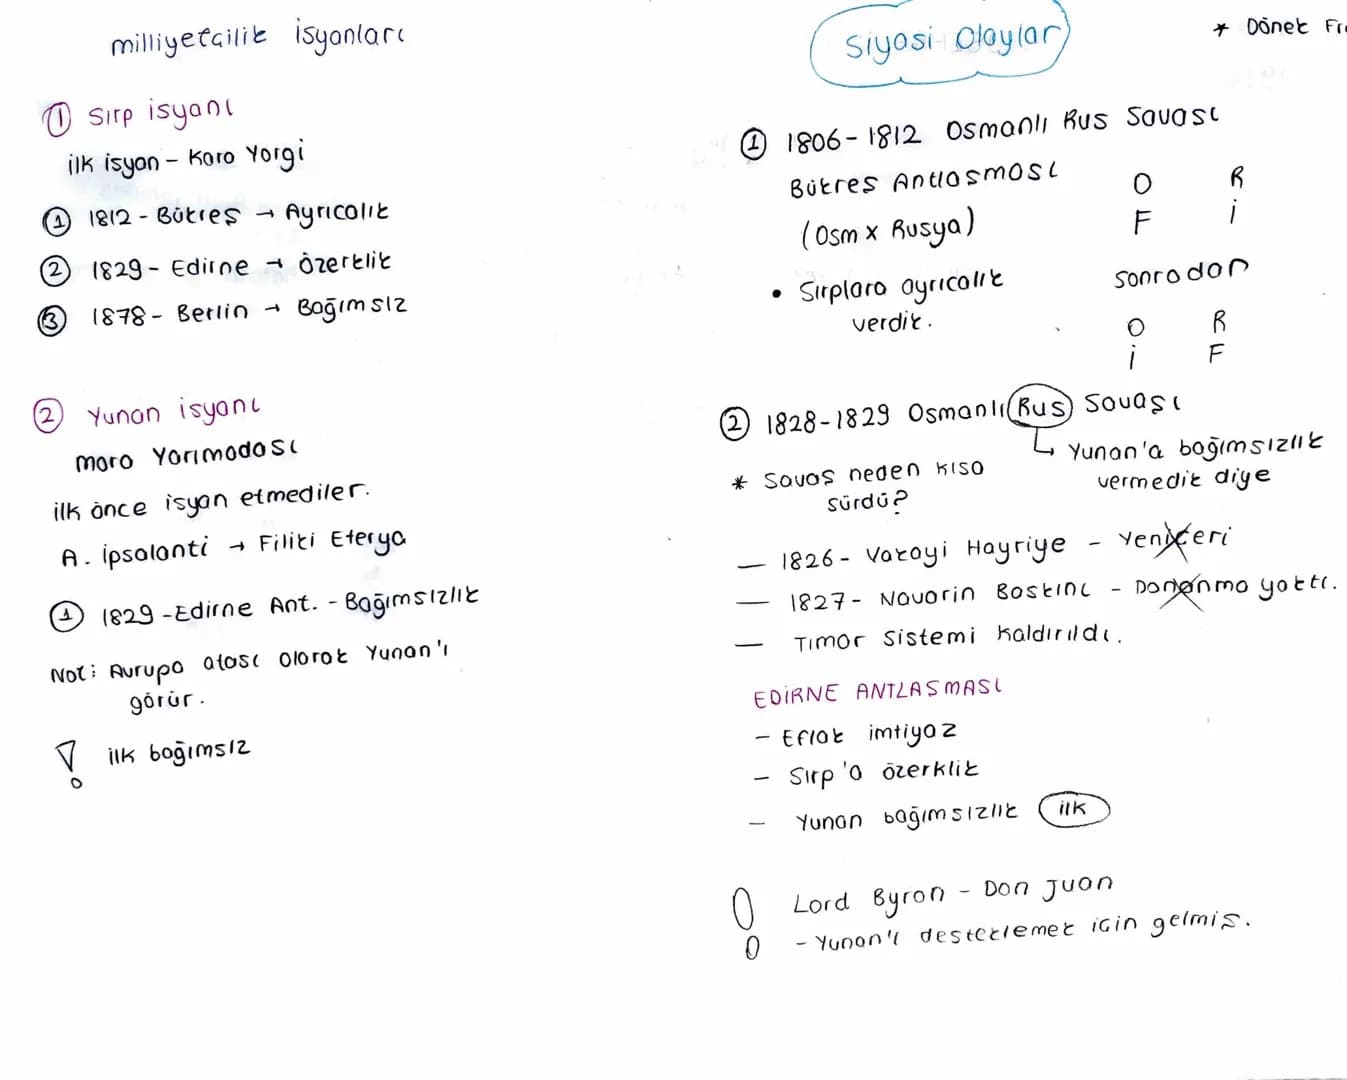 milliyetçilik isyanları
① Sırp isyanı
ilk isyan - Kara Yorgi
① 1812 - Bükreş → Ayrıcalık
② 1829 - Edirne → özerklik
③ 1878 - Berlin → Bağımsız
② Yunan isyanı
mora Yarımadası
ilk önce isyan etmediler.
A. ipsalanti → Filiki Eterya
① 1829 - Edirne Ant. - Bağımsızlık
Not: Avrupa atası olarak Yunan'ı
görür.
! ilk bağımsız
Siyasi Olaylar
* Dönek
① 1806 - 1812 Osmanlı Rus Savası
Bükres Antlasması
O R
(Osm x Rusya)
F i
• Sırplara ayrıcalık
verdik.
sonradan
O R
i F
② 1828 - 1829 Osmanlı Rus Savaşı
↳ Yunan'a bağımsızlık
vermedik diye
* Savas neden kısa
sürdü?
— 1826 - Vakayi Hayriye - Yeniçeri
— 1827 - Navarin Baskını - Donanma yaktı.
— Tımar Sistemi Kaldırıldı.
EDİRNE ANTLASMASI
- Eflak imtiyaz
- Sırp'a özerklik
- Yunan bağımsızlık ilk
! Lord Byron - Don Juan
- Yunan'ı desteklemek için gelmiş.